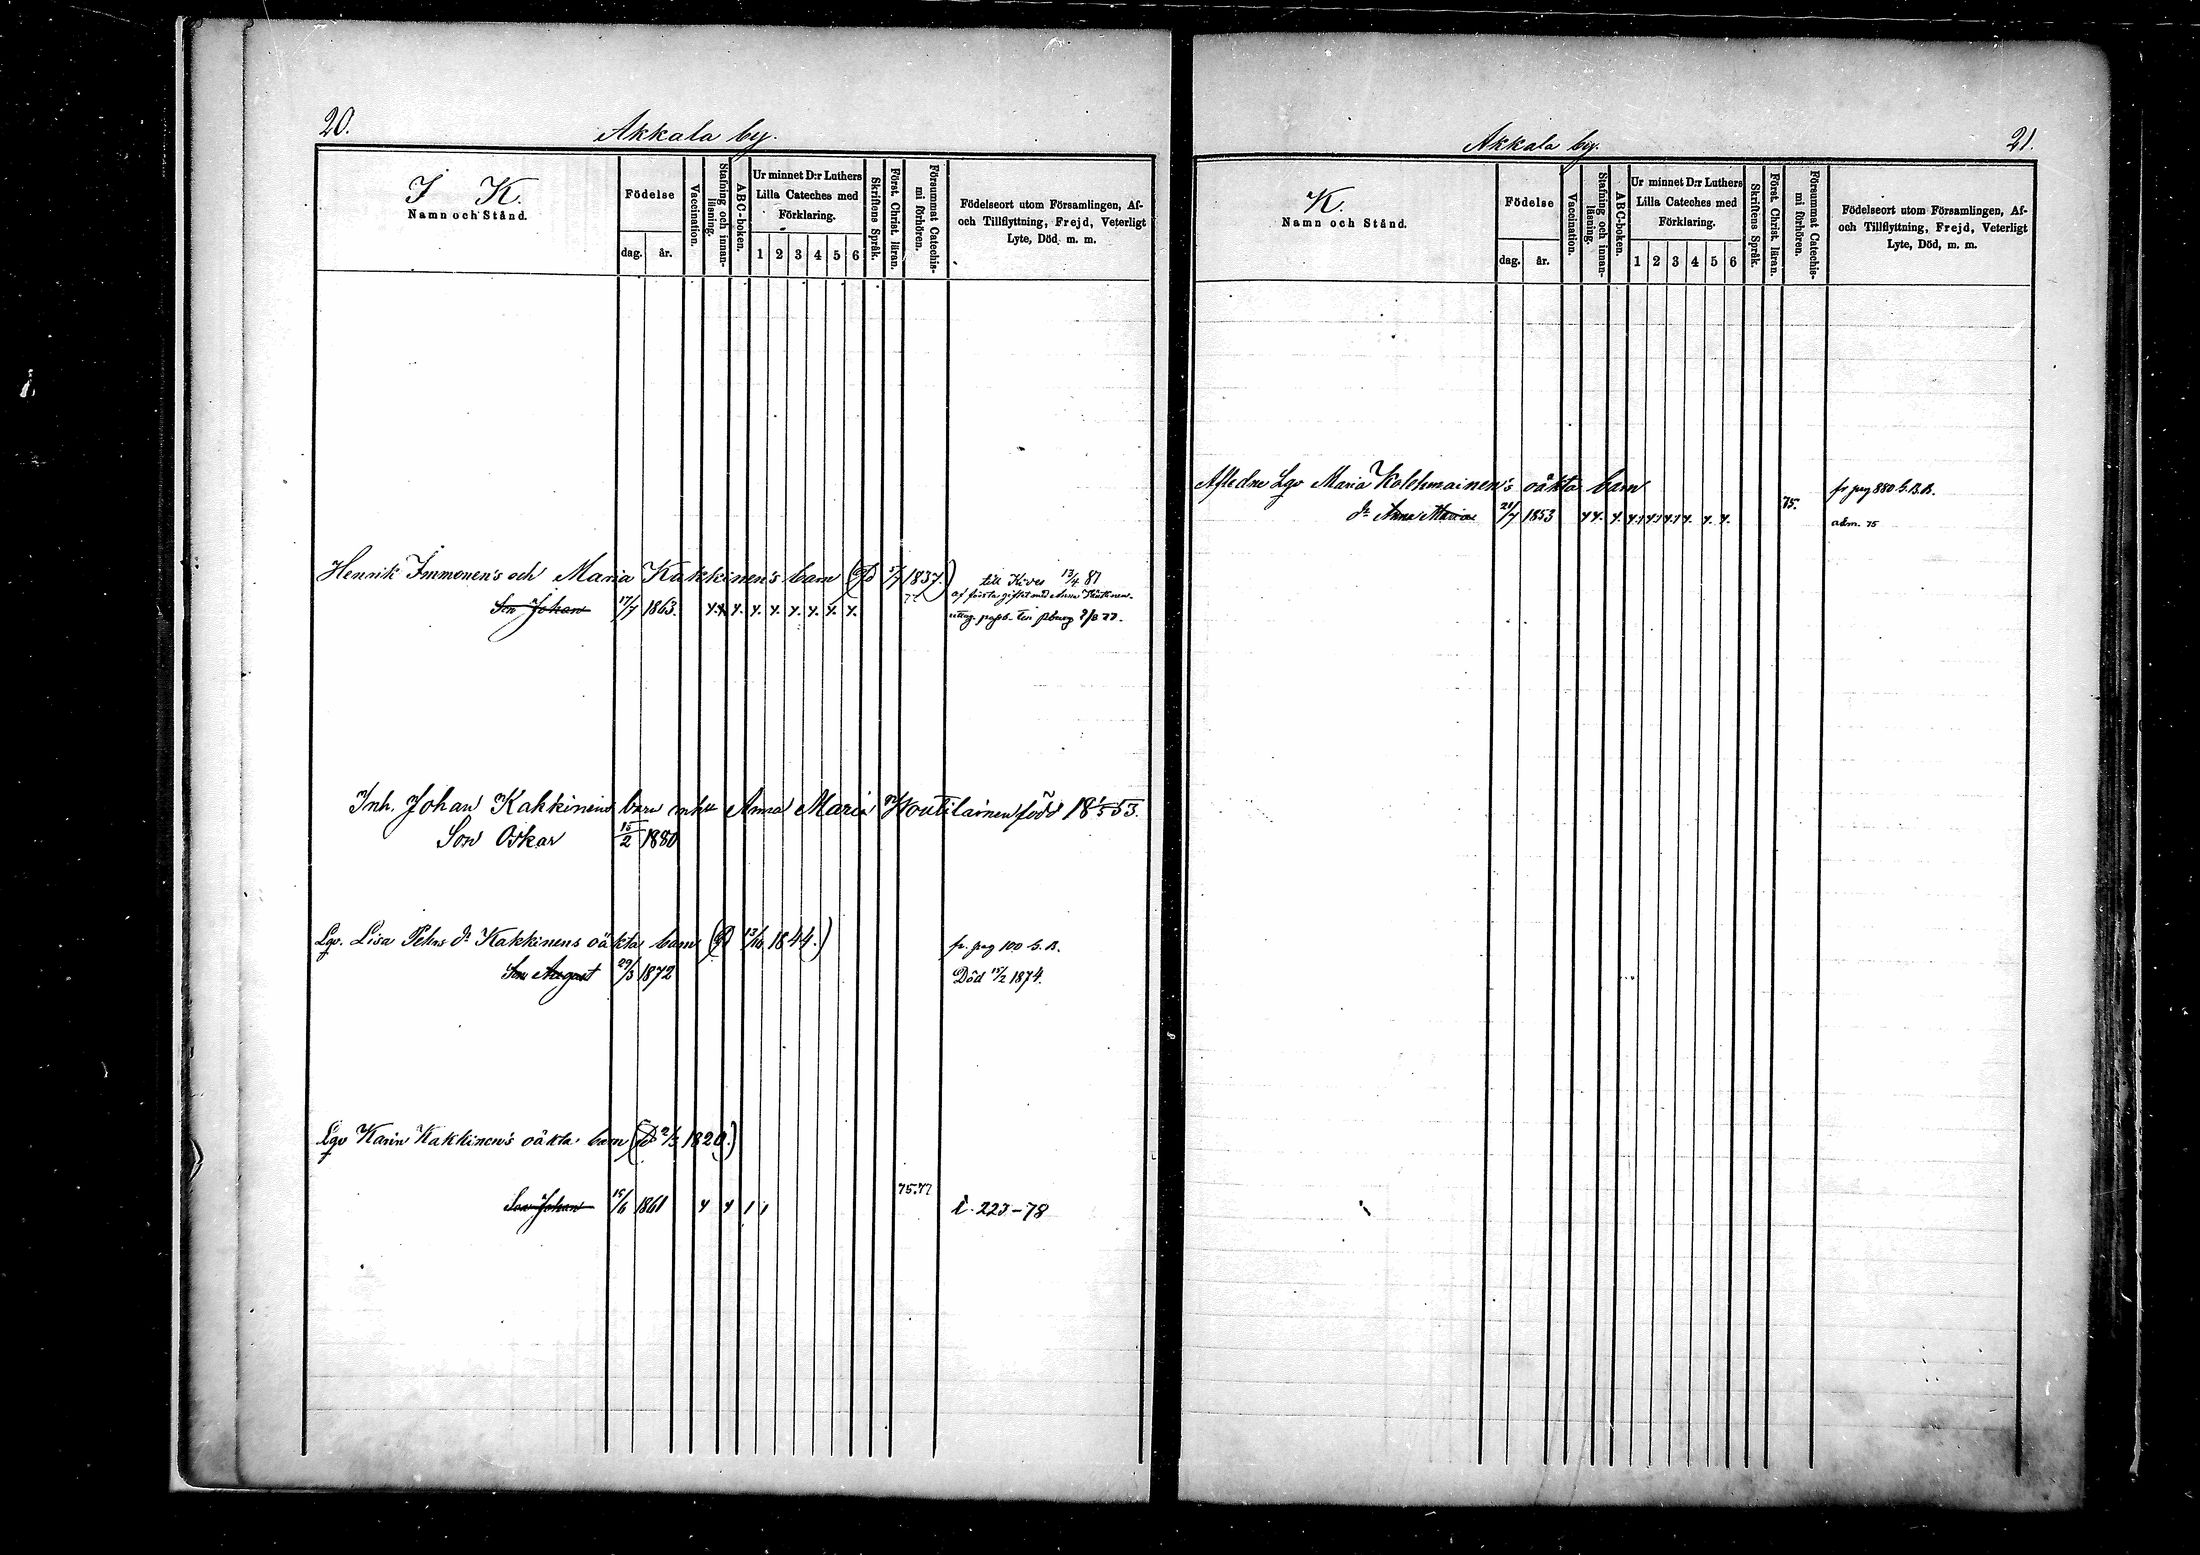 20.
Akkala by.
I K.
Namn och Stånd.
Födelse
dag. år.
Vaccination.
Stafning och innanläsning.
ABC-boken.
Ur minnet D:r Luthers
Lilla Cateches med
Förklaring.
1 2 3 4 5 6
Skriftens Språk.
Först. Christ. läran.
Försummat Catechismi förhören.
Födelseort utom Församlingen, Af-
och Tillflyttning, Frejd, Veterligt
Lyte, Död, m. m.
Henrik Immonen's och Maria Kakkinen's barn 1837.) till 13/4 81
Son Johan 17/7 1863.
Inh. Johan Kakkinens barn Anna Maria född 18 1/5 53.
Son Oskar 15/2 1880
Lgo. Lisa Pehrs dr Kakkinens oäkta barn 13/10 1844.) fr. pag 100 b. B.
Son August 29/3 1872 Död 15/2 1874.
Lgo Karin Kakkinen's oäkta barn 1820.)
Son Johan 15/6 1861 75.77 i. 223-78
Akkala by.
21.
K.
Namn och Stånd.
Födelse
dag. år.
Vaccination.
Stafning och innanläsning.
ABC-boken.
Ur minnet D:r Luthers
Lilla Cateches med
Förklaring.
1 2 3 4 5 6
Skriftens Språk.
Först. Christ. läran.
Försummat Catechismi förhören.
Födelseort utom Församlingen, Af-
och Tillflyttning, Frejd, Veterligt
Lyte, Död, m. m.
Afledne Lgo Maria Kolehmainen's oäkta barn fr pag 880 b. B.
dr Anna Maria 21/7 1853 75. adm. 75